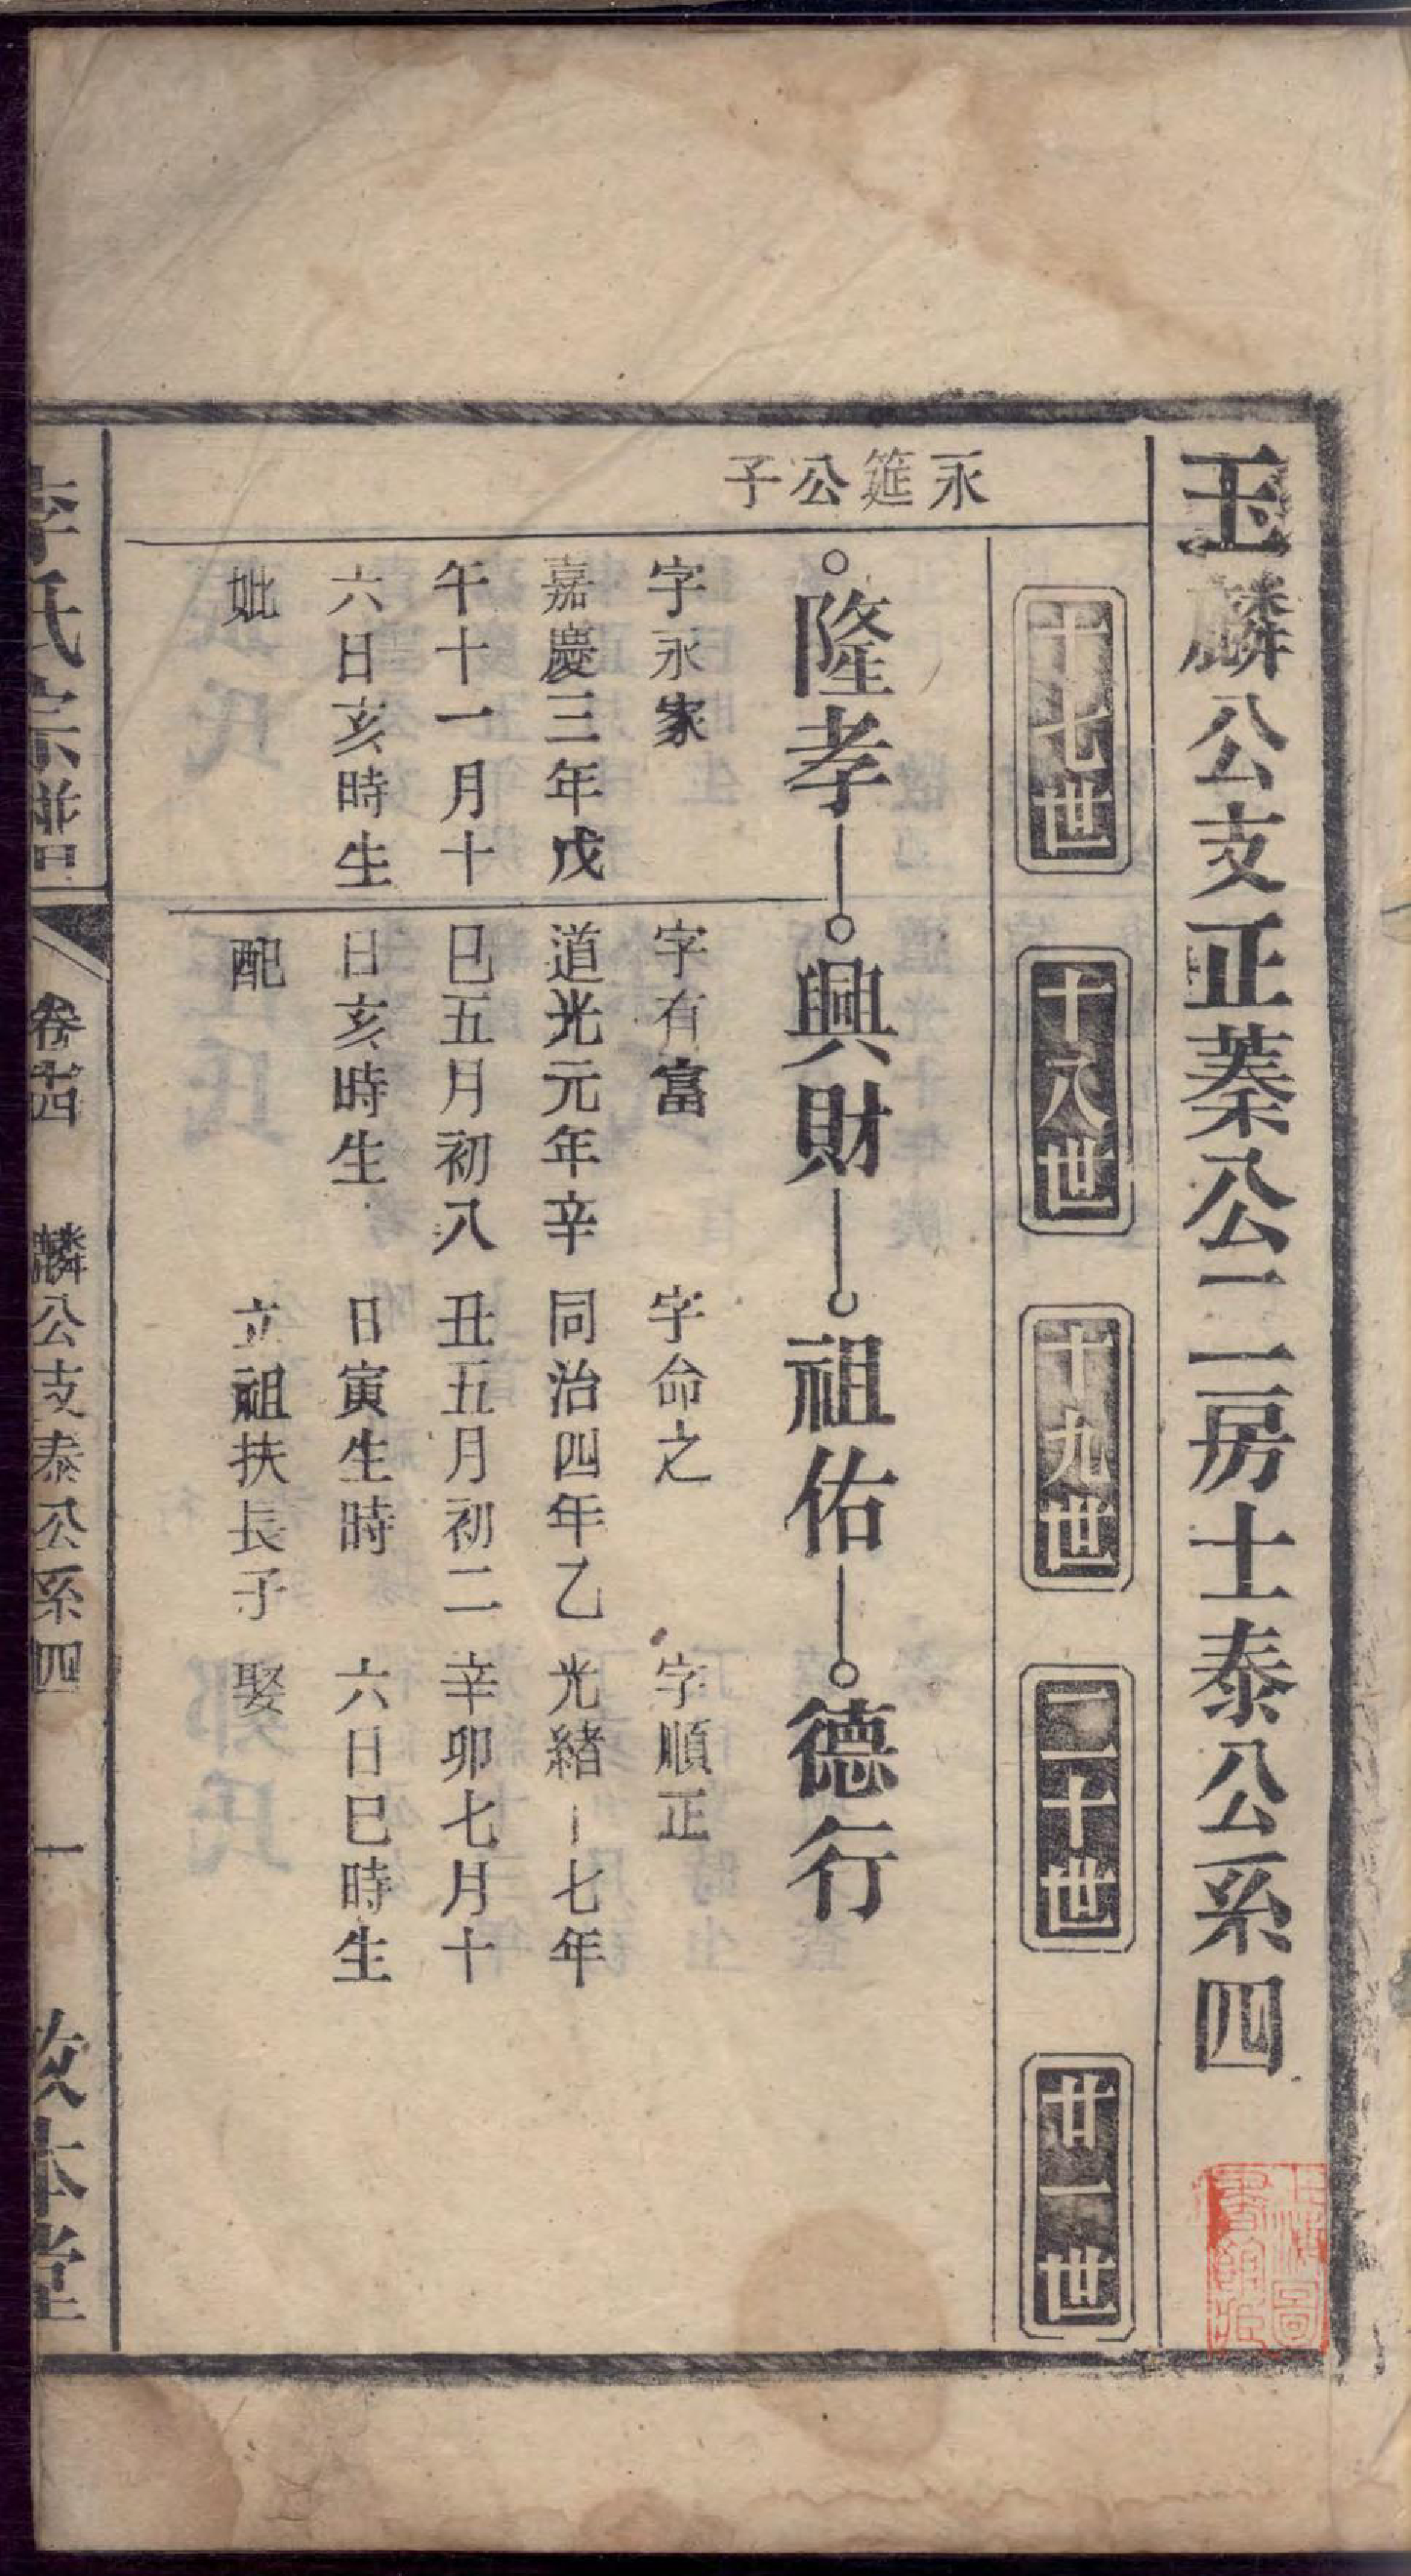 玉麟公支正蓁公二房士泰公系四
十七世
十八世
十九世
二十世
廿一世
永筵公子
隆孝
字永家
嘉慶三年戊
午十一月十
六日亥時生
妣
興財
字有富
道光元年辛
巳五月初八
日亥時生
配
祖佑
字命之
同治四年乙
丑五月初二
日寅生時
立祖扶長子
德行
字順正
光緒十七年
辛卯七月十
六日巳時生
娶
李氏宗譜
卷十四
麟公支泰公系四
一
敦本堂